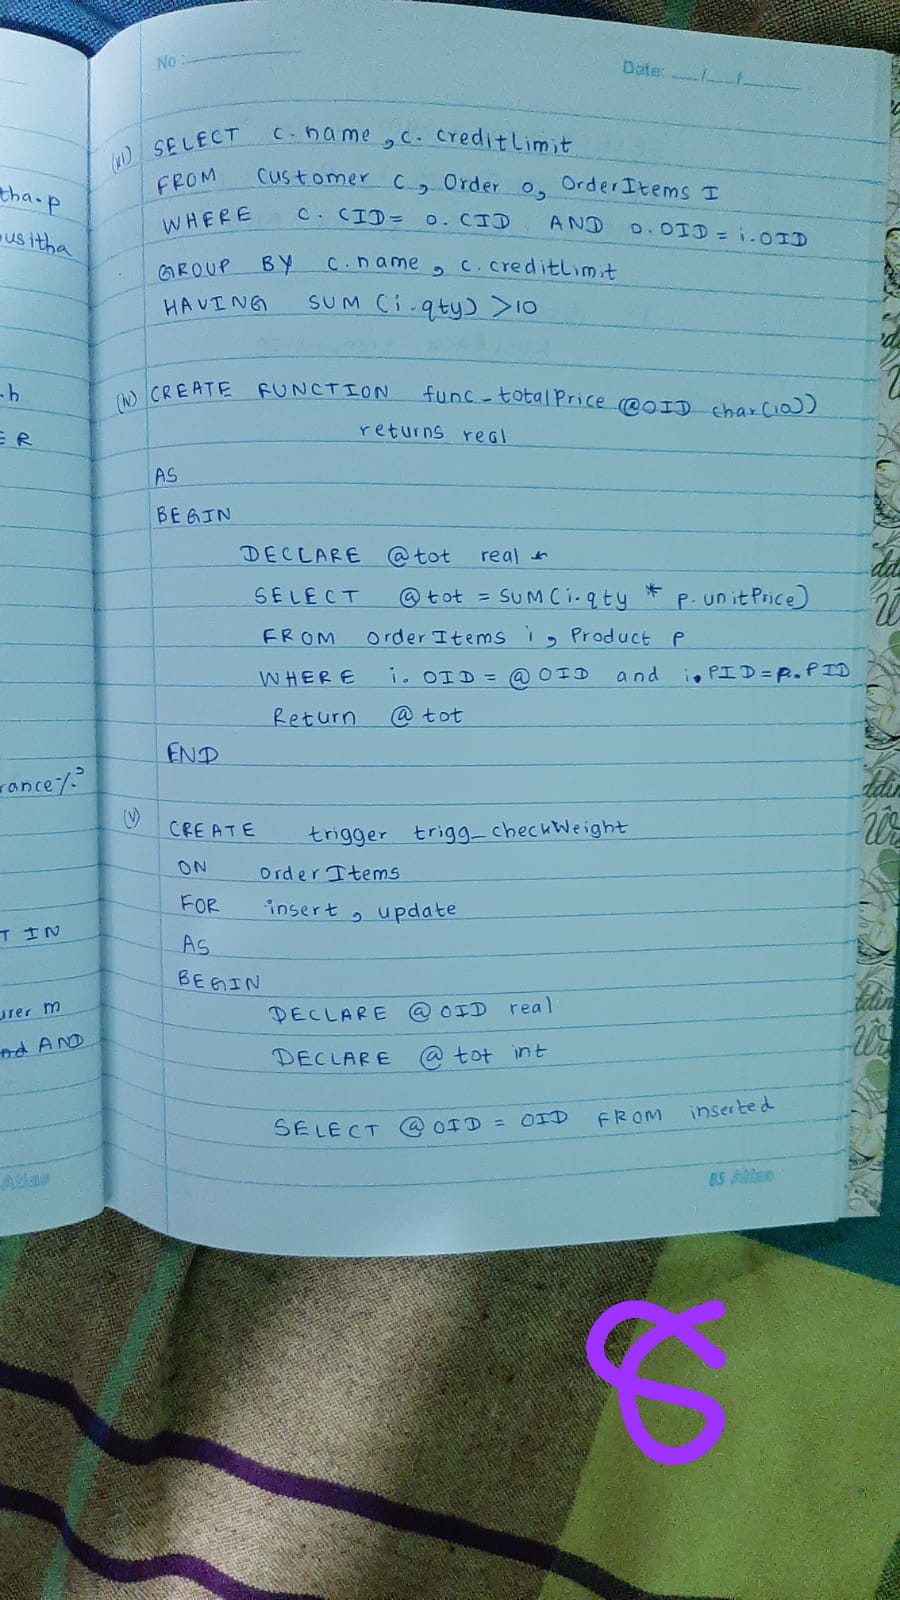 No:
Date: __/__/__
(vi) SELECT c.name, c.creditLimit
FROM Customer c, Order o, OrderItems I
WHERE c.CID= o.CID AND o.OID = i.OID
GROUP BY c.name, c.creditLimit
HAVING SUM (i.qty) >10
(iv) CREATE FUNCTION func_totalPrice @OID char(10))
returns real
AS
BEGIN
DECLARE @tot real
SELECT @tot = SUM(i.qty * p.unitPrice)
FROM OrderItems i, Product p
WHERE i.OID = @OID and i.PID=p.PID
Return @tot
END
(v) CREATE trigger trigg_checkWeight
ON orderItems
FOR insert, update
AS
BEGIN
DECLARE @OID real
DECLARE @tot int
SELECT @OID = OID FROM inserted
BS Atlas
tha.p
usitha
.h
ER
rance%?
T IN
urer m
AND
Atlas
8